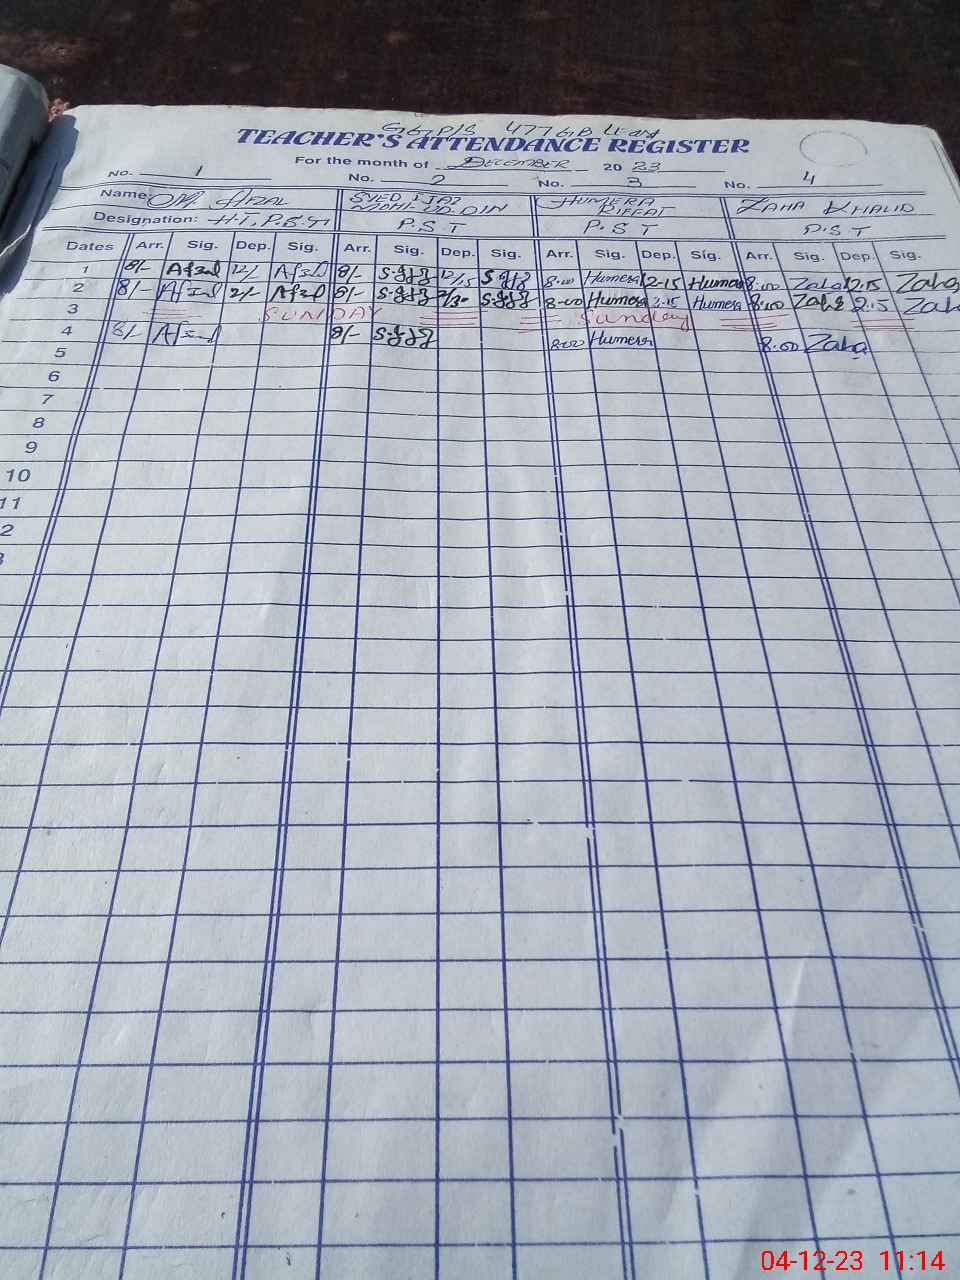 G.G.P/S 477 G.B
TEACHER'S ATTENDANCE REGISTER
For the month of DECEMBER 2023
No. 1 No. 2 No. 3 No. 4
Name: M. Afzal SYED IJAZ HUMERA RIFFAT ZAHA KHALID
Designation: P.S.T P.S.T P.S.T
Dates Arr. Sig. Dep. Sig. Arr. Sig. Dep. Sig. Arr. Sig. Dep. Sig. Arr. Sig. Dep. Sig.
1 8/- Afzal 12/- Afzal 8/- 12/15 8:00 Humera 12-15 Humera 8:00 Zaha 12:15 Zaha
2 8/- Afzal 2/- Afzal 8/- 8-00 Humera 2:15 Humera 8:00 Zaha 2:15 Zaha
3 SUNDAY Sunday
4 8/- Afzal 8/- 8:00 Humera 8:00 Zaha
5
6
7
8
9
10
11
2
04-12-23 11:14